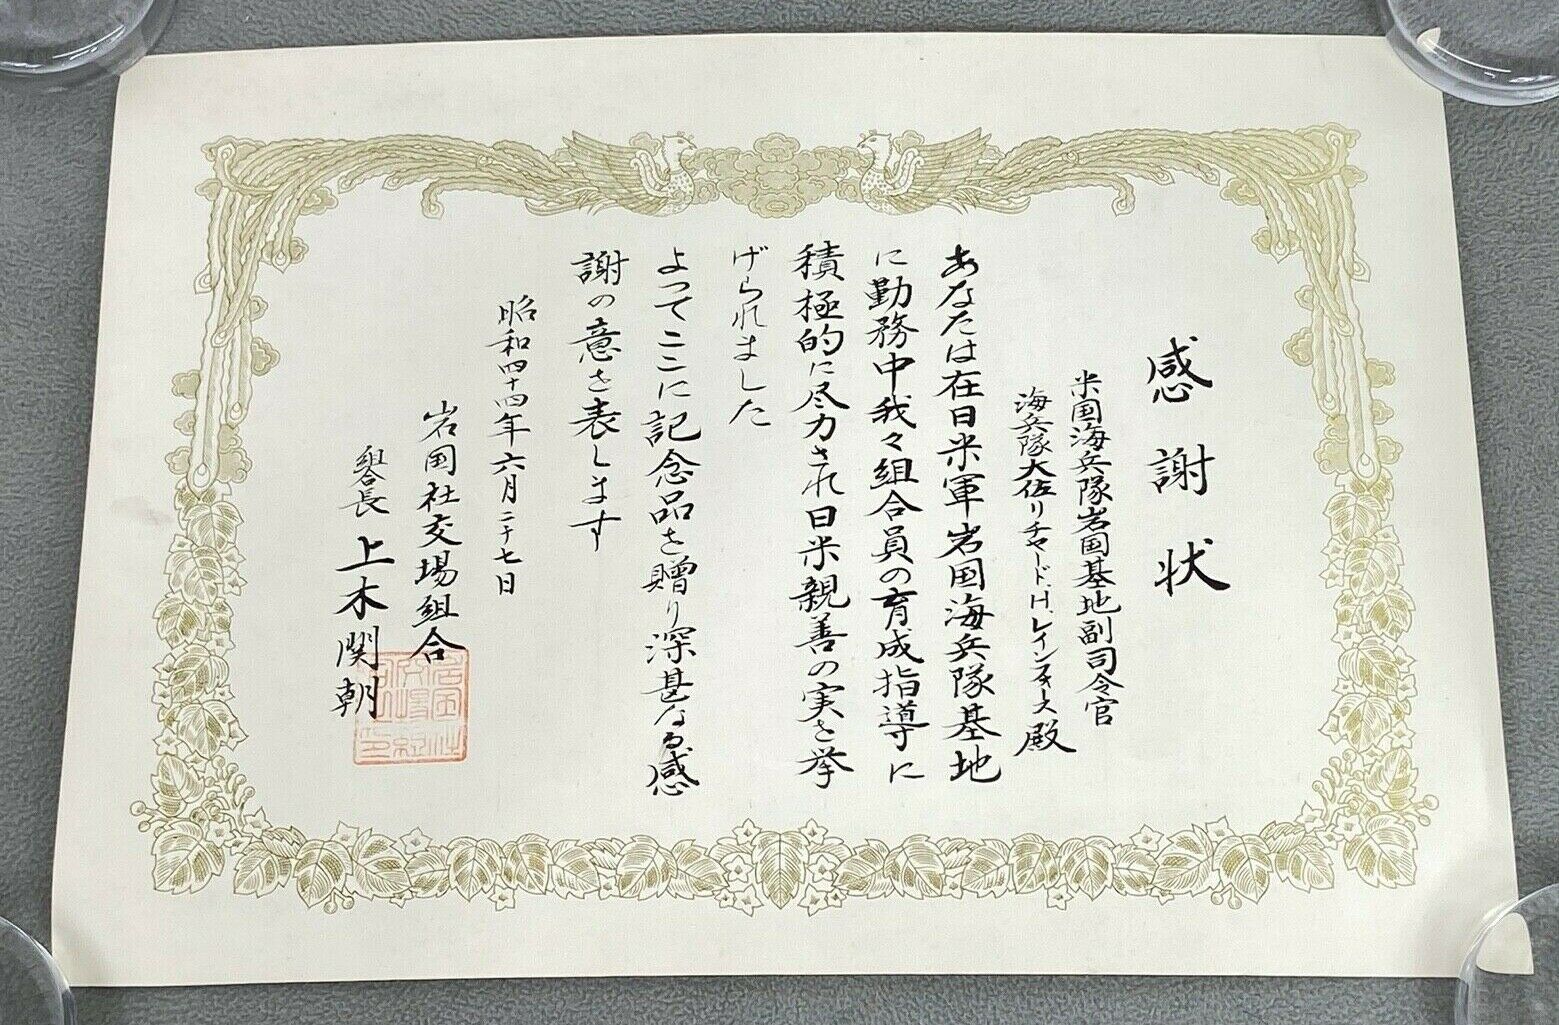 感謝状
米国海兵隊岩国基地副司令官
海兵隊大佐リチャード.H.レインフォース殿
あなたは在日米軍岩国海兵隊基地
に勤務中我々組合員の育成指導に
積極的に尽力され日米親善の実を挙
げられました
よってここに記念品を贈り深甚なる感
謝の意を表します
昭和四十四年六月二十七日
岩国社交場組合
組合長 上木関朝